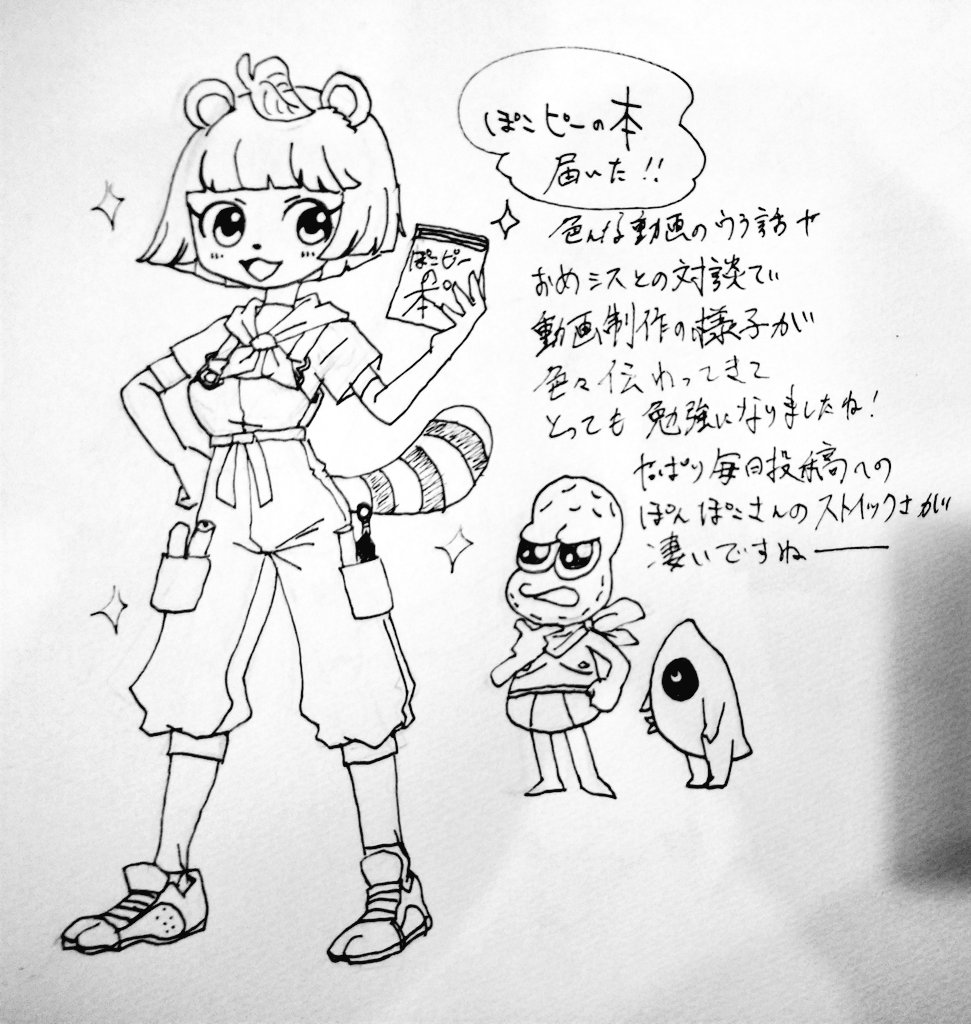 ぽこピーの本
届いた!!
ぽこピー
の
本
色んな動画のウラ話や
おめシスとの対談で
動画制作の様子が
色々伝わってきて
とっても勉強になりましたね!
やっぱり毎日投稿への
ぽんぽこさんのストイックさが
凄いですねー